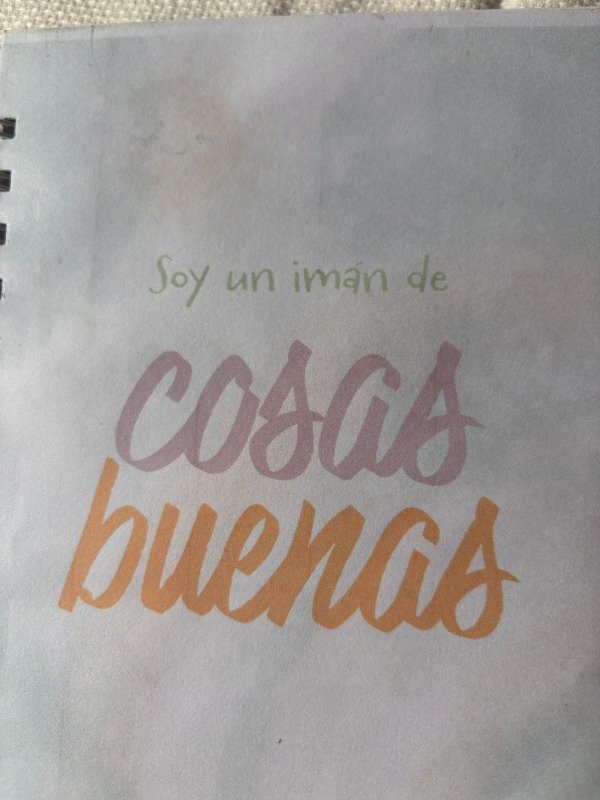 Soy un imán de
cosas
buenas